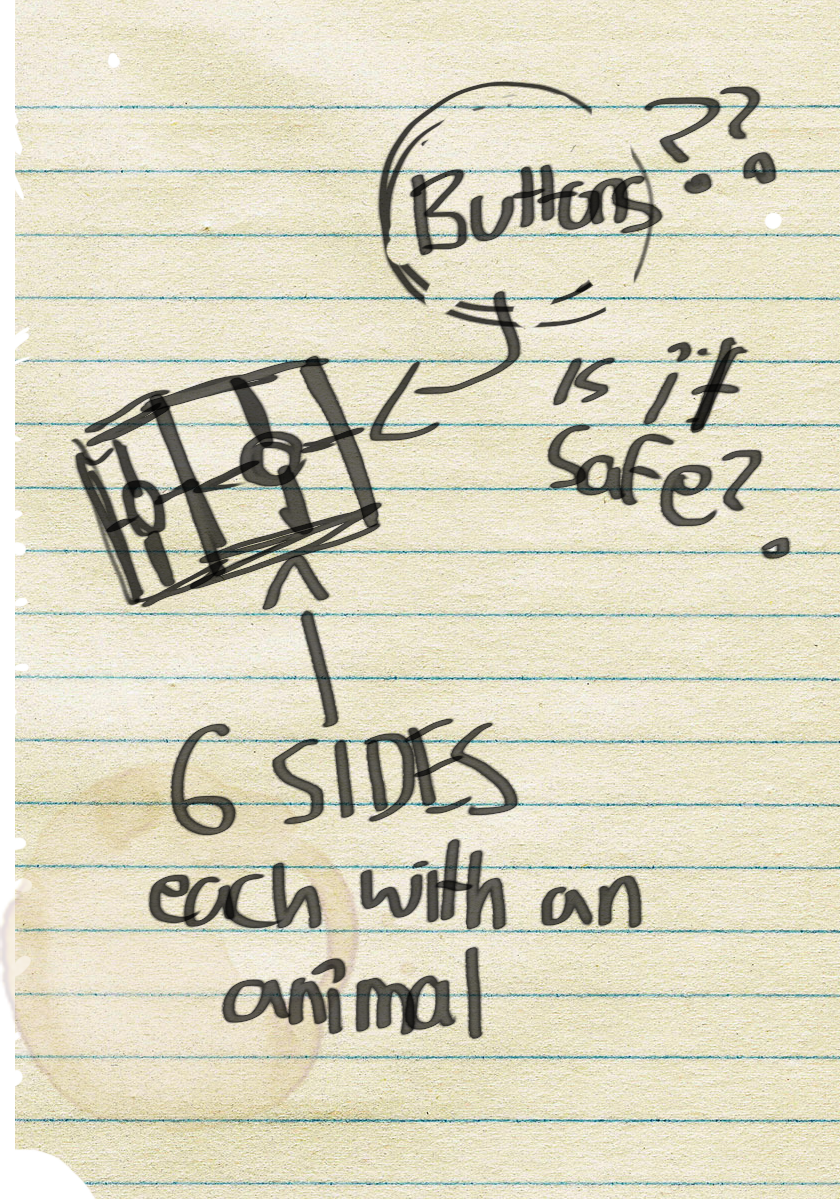 Buttons ??
is it
safe?
6 SIDES
each with an
animal